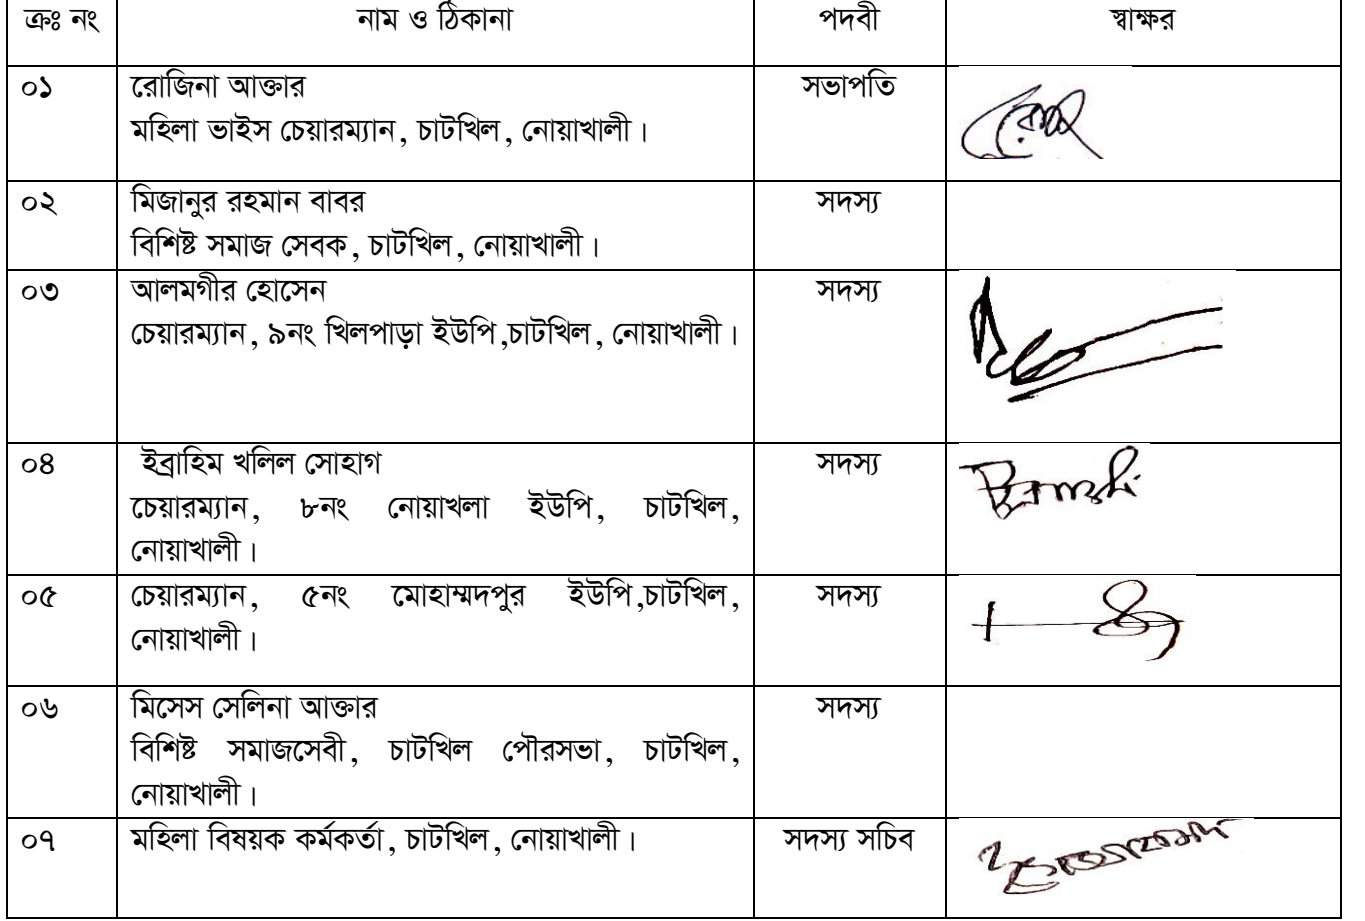 ক্রঃ নং নাম ও ঠিকানা পদবী স্বাক্ষর
০১ রোজিনা আক্তার সভাপতি
মহিলা ভাইস চেয়ারম্যান, চাটখিল, নোয়াখালী।
০২ মিজানুর রহমান বাবর সদস্য
বিশিষ্ট সমাজ সেবক, চাটখিল, নোয়াখালী।
০৩ আলমগীর হোসেন সদস্য
চেয়ারম্যান, ৯নং খিলপাড়া ইউপি,চাটখিল, নোয়াখালী।
০৪ ইব্রাহিম খলিল সোহাগ সদস্য
চেয়ারম্যান, ৮নং নোয়াখলা ইউপি, চাটখিল,
নোয়াখালী।
০৫ চেয়ারম্যান, ৫নং মোহাম্মদপুর ইউপি,চাটখিল, সদস্য
নোয়াখালী।
০৬ মিসেস সেলিনা আক্তার সদস্য
বিশিষ্ট সমাজসেবী, চাটখিল পৌরসভা, চাটখিল,
নোয়াখালী।
০৭ মহিলা বিষয়ক কর্মকর্তা, চাটখিল, নোয়াখালী। সদস্য সচিব